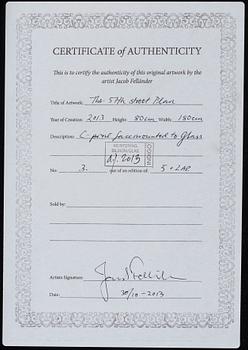 CERTIFICATE of AUTHENTICITY
This is to certify the authenticity of this original artwork by the
artist Jacob Felländer
Title of Artwork: The 57th street Plan
Year of Creation: 2013 Height: 80cm Width: 180cm
Description: C-print facemounted to Glass
MONTERING
BILD/IN/GLAS
07.2013
No: 3. out of an edition of 5+2AP
Sold by:
Artists Signature:
Date: 30/10-2013